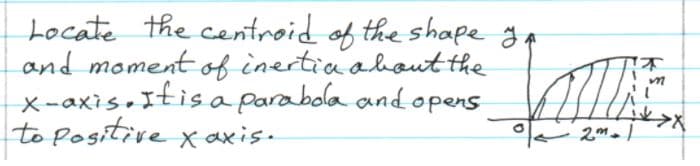 Locate the centroid of the shape
and moment of inertia about the
x-axis. It is a parabola and opens
to positive x axis.
y
1m
o
2m.
x